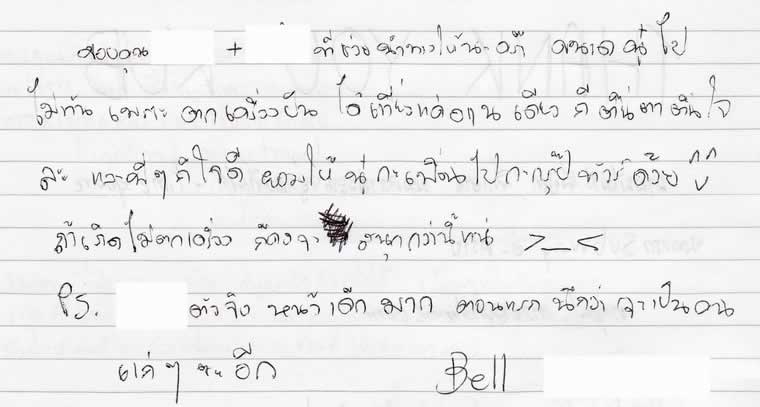 ขอบคุณ + ที่ช่วยนำทางให้นะคร๊ ขนาดหนูไป
ไม่ทัน เพราะ ตกเครื่องบิน ได้เที่ยวแค่ วันเดียว ก็ ตื่นตาตื่นใจ
ละ และพี่ๆ ก็ใจดี ยอมให้ หนูกะเพื่อนไปกะกรุ๊ปทัวร์ด้วย
ถ้าเกิดไม่ตกเครื่อง ก็คงจะ สนุกกว่านี้ >_<
Ps. ตัวจริง หน้าเด็กมาก ตอนแรก นึกว่าจะเป็นคน
แก่ๆ ซะอีก Bell